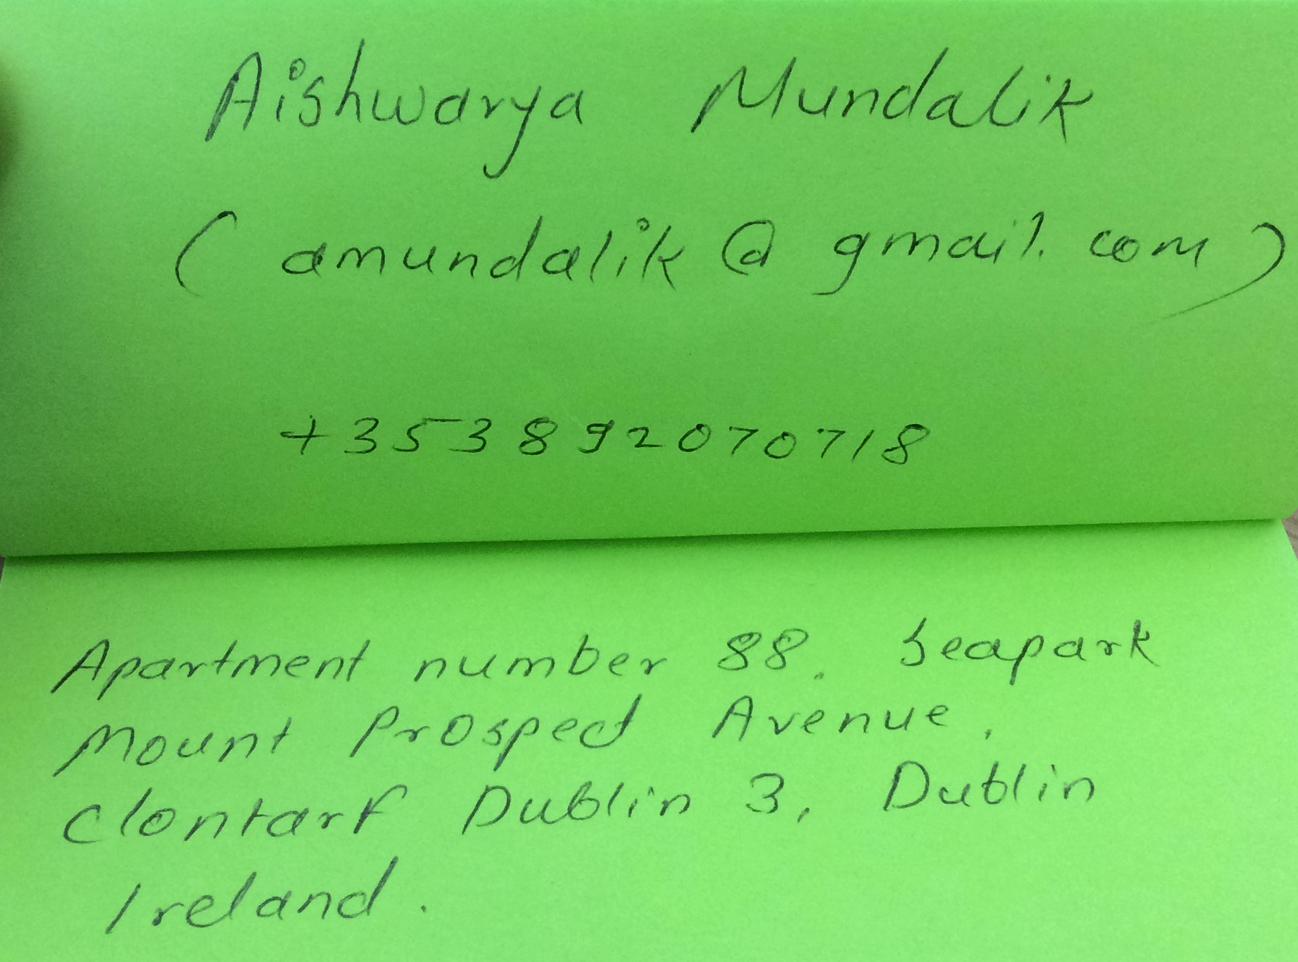 Aishwarya Mundalik
(amundalik@gmail.com)
+353892070718
Apartment number 88, Seapark
Mount Prospect Avenue,
Clontarf Dublin 3, Dublin
Ireland.